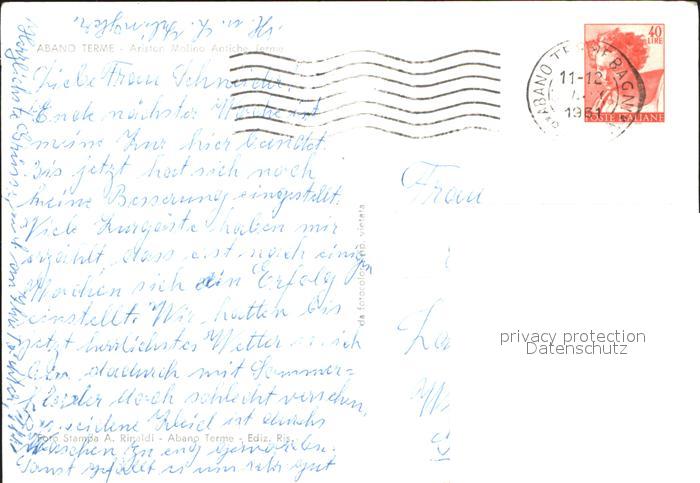 ABANO TERME - Ariston Molino Antiche Terme
Liebe Frau Schneider!
Ende nächster Woche ist
meine Kur hier beendet.
Bis jetzt hat sich noch
keine Besserung eingestellt.
Viele Kurgäste haben mir
erzählt, dass erst nach einigen
Wochen sich ein Erfolg
einstellt. Wir hatten bis
jetzt herrlichstes Wetter
dadurch mit Sommer=
kleider doch schlecht versehen,
seidene Kleid ist durchs
Waschen zu eng geworden.
Sonst gefällt es uns sehr gut
Foto Stampa A. Rinaldi - Abano Terme - Ediz. Ris.
Herzlichste Grüsse
da fotocolor rip. vietata
ABANO TERME BAGNI
11-12
1961
40
LIRE
POSTE ITALIANE
Frau
privacy protection
Datenschutz